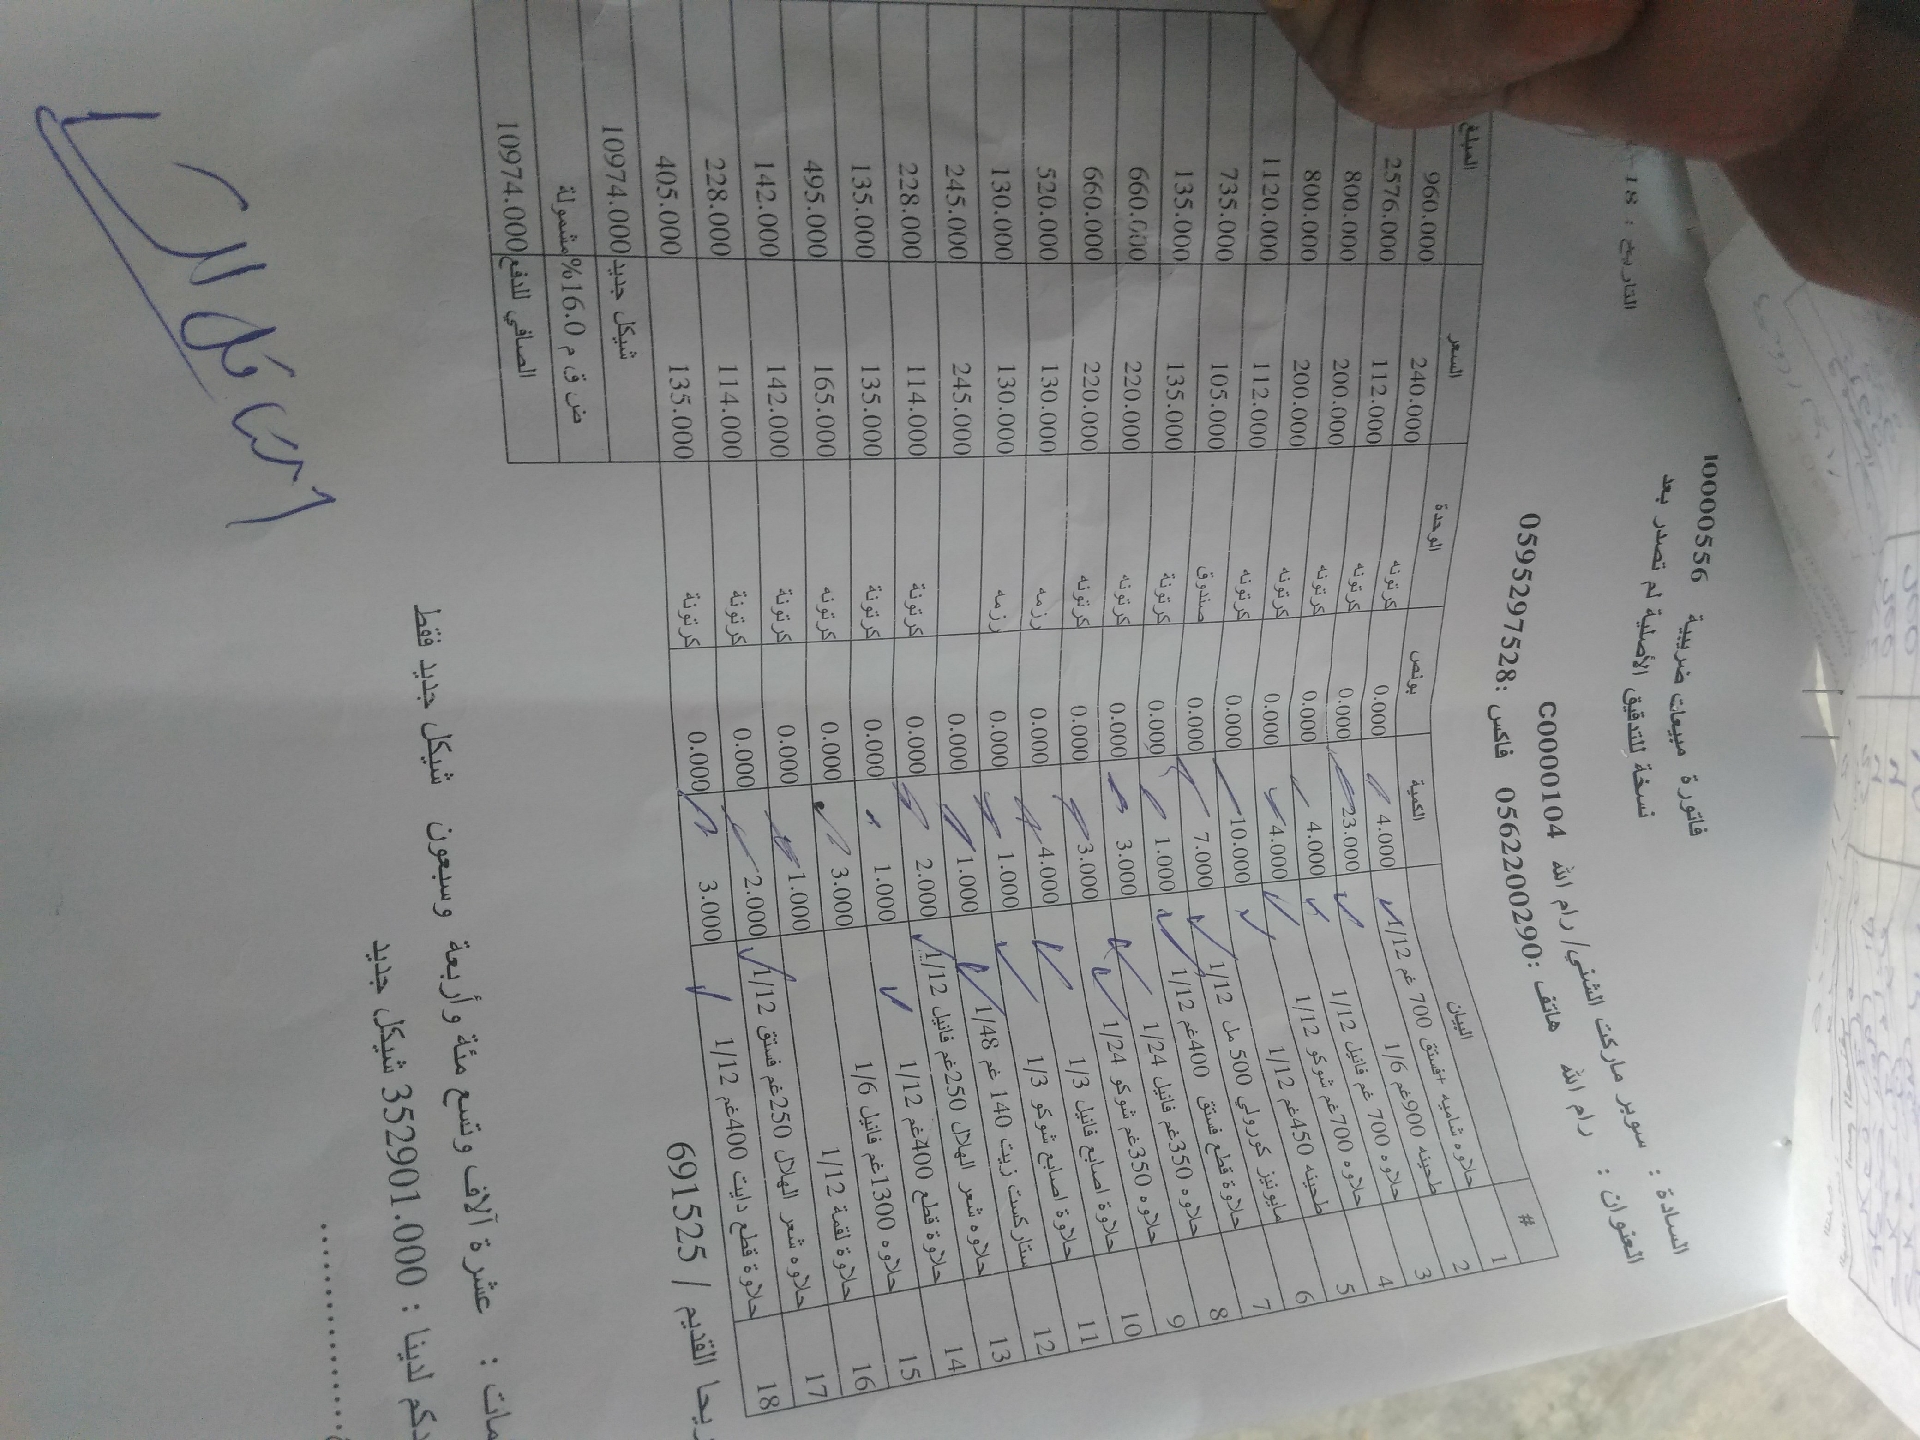 فاتورة مبيعات ضريبية I0000556
نسخة للتدقيق الأصلية لم تصدر بعد
التاريخ : 18
السادة : سوبر ماركت الشني/ رام الله C0000104
العنوان : رام الله هاتف :0562200290 فاكس :0595297528
# البيان الكمية بونص الوحدة السعر المبلغ
1 حلاوه شاميه +فستق 700 غم 1/12 4.000 0.000 كرتونه 240.000 960.000
2 طحينه 900غم 1/6 23.000 0.000 كرتونه 112.000 2576.000
3 حلاوه 700 غم فانيل 1/12 4.000 0.000 كرتونه 200.000 800.000
4 حلاوه 700غم شوكو 1/12 4.000 0.000 كرتونه 200.000 800.000
5 طحينه 450غم 1/12 10.000 0.000 كرتونه 112.000 1120.000
6 مايونيز كورولي 500 مل 1/12 7.000 0.000 صندوق 105.000 735.000
7 حلاوة قطع فستق 400غم 1/12 1.000 0.000 كرتونة 135.000 135.000
8 حلاوه 350غم فانيل 1/24 3.000 0.000 كرتونه 220.000 660.000
9 حلاوه 350غم شوكو 1/24 3.000 0.000 كرتونه 220.000 660.000
10 حلاوة اصابع فانيل 1/3 4.000 0.000 رزمه 130.000 520.000
11 حلاوة اصابع شوكو 1/3 1.000 0.000 رزمه 130.000 130.000
12 ستاركست زيت 140 غم 1/48 1.000 0.000 245.000 245.000
13 حلاوه شعر الهلال 250غم فانيل 1/12 2.000 0.000 كرتونة 114.000 228.000
14 حلاوة قطع 400غم 1/12 1.000 0.000 كرتونة 135.000 135.000
15 حلاوه 1300غم فانيل 1/6 3.000 0.000 كرتونه 165.000 495.000
16 حلاوة لقمة 1/12 1.000 0.000 كرتونة 142.000 142.000
17 حلاوه شعر الهلال 250غم فستق 1/12 2.000 0.000 كرتونة 114.000 228.000
18 حلاوة قطع دايت 400غم 1/12 3.000 0.000 كرتونة 135.000 405.000
شيكل جديد 10974.000
ض ق م 16.0% مشمولة
الصافي للدفع 10974.000
يحا القديم / 691525
مات : عشرة آلاف وتسع مئة وأربعة وسبعون شيكل جديد فقط
دكم لدينا : 352901.000 شيكل جديد